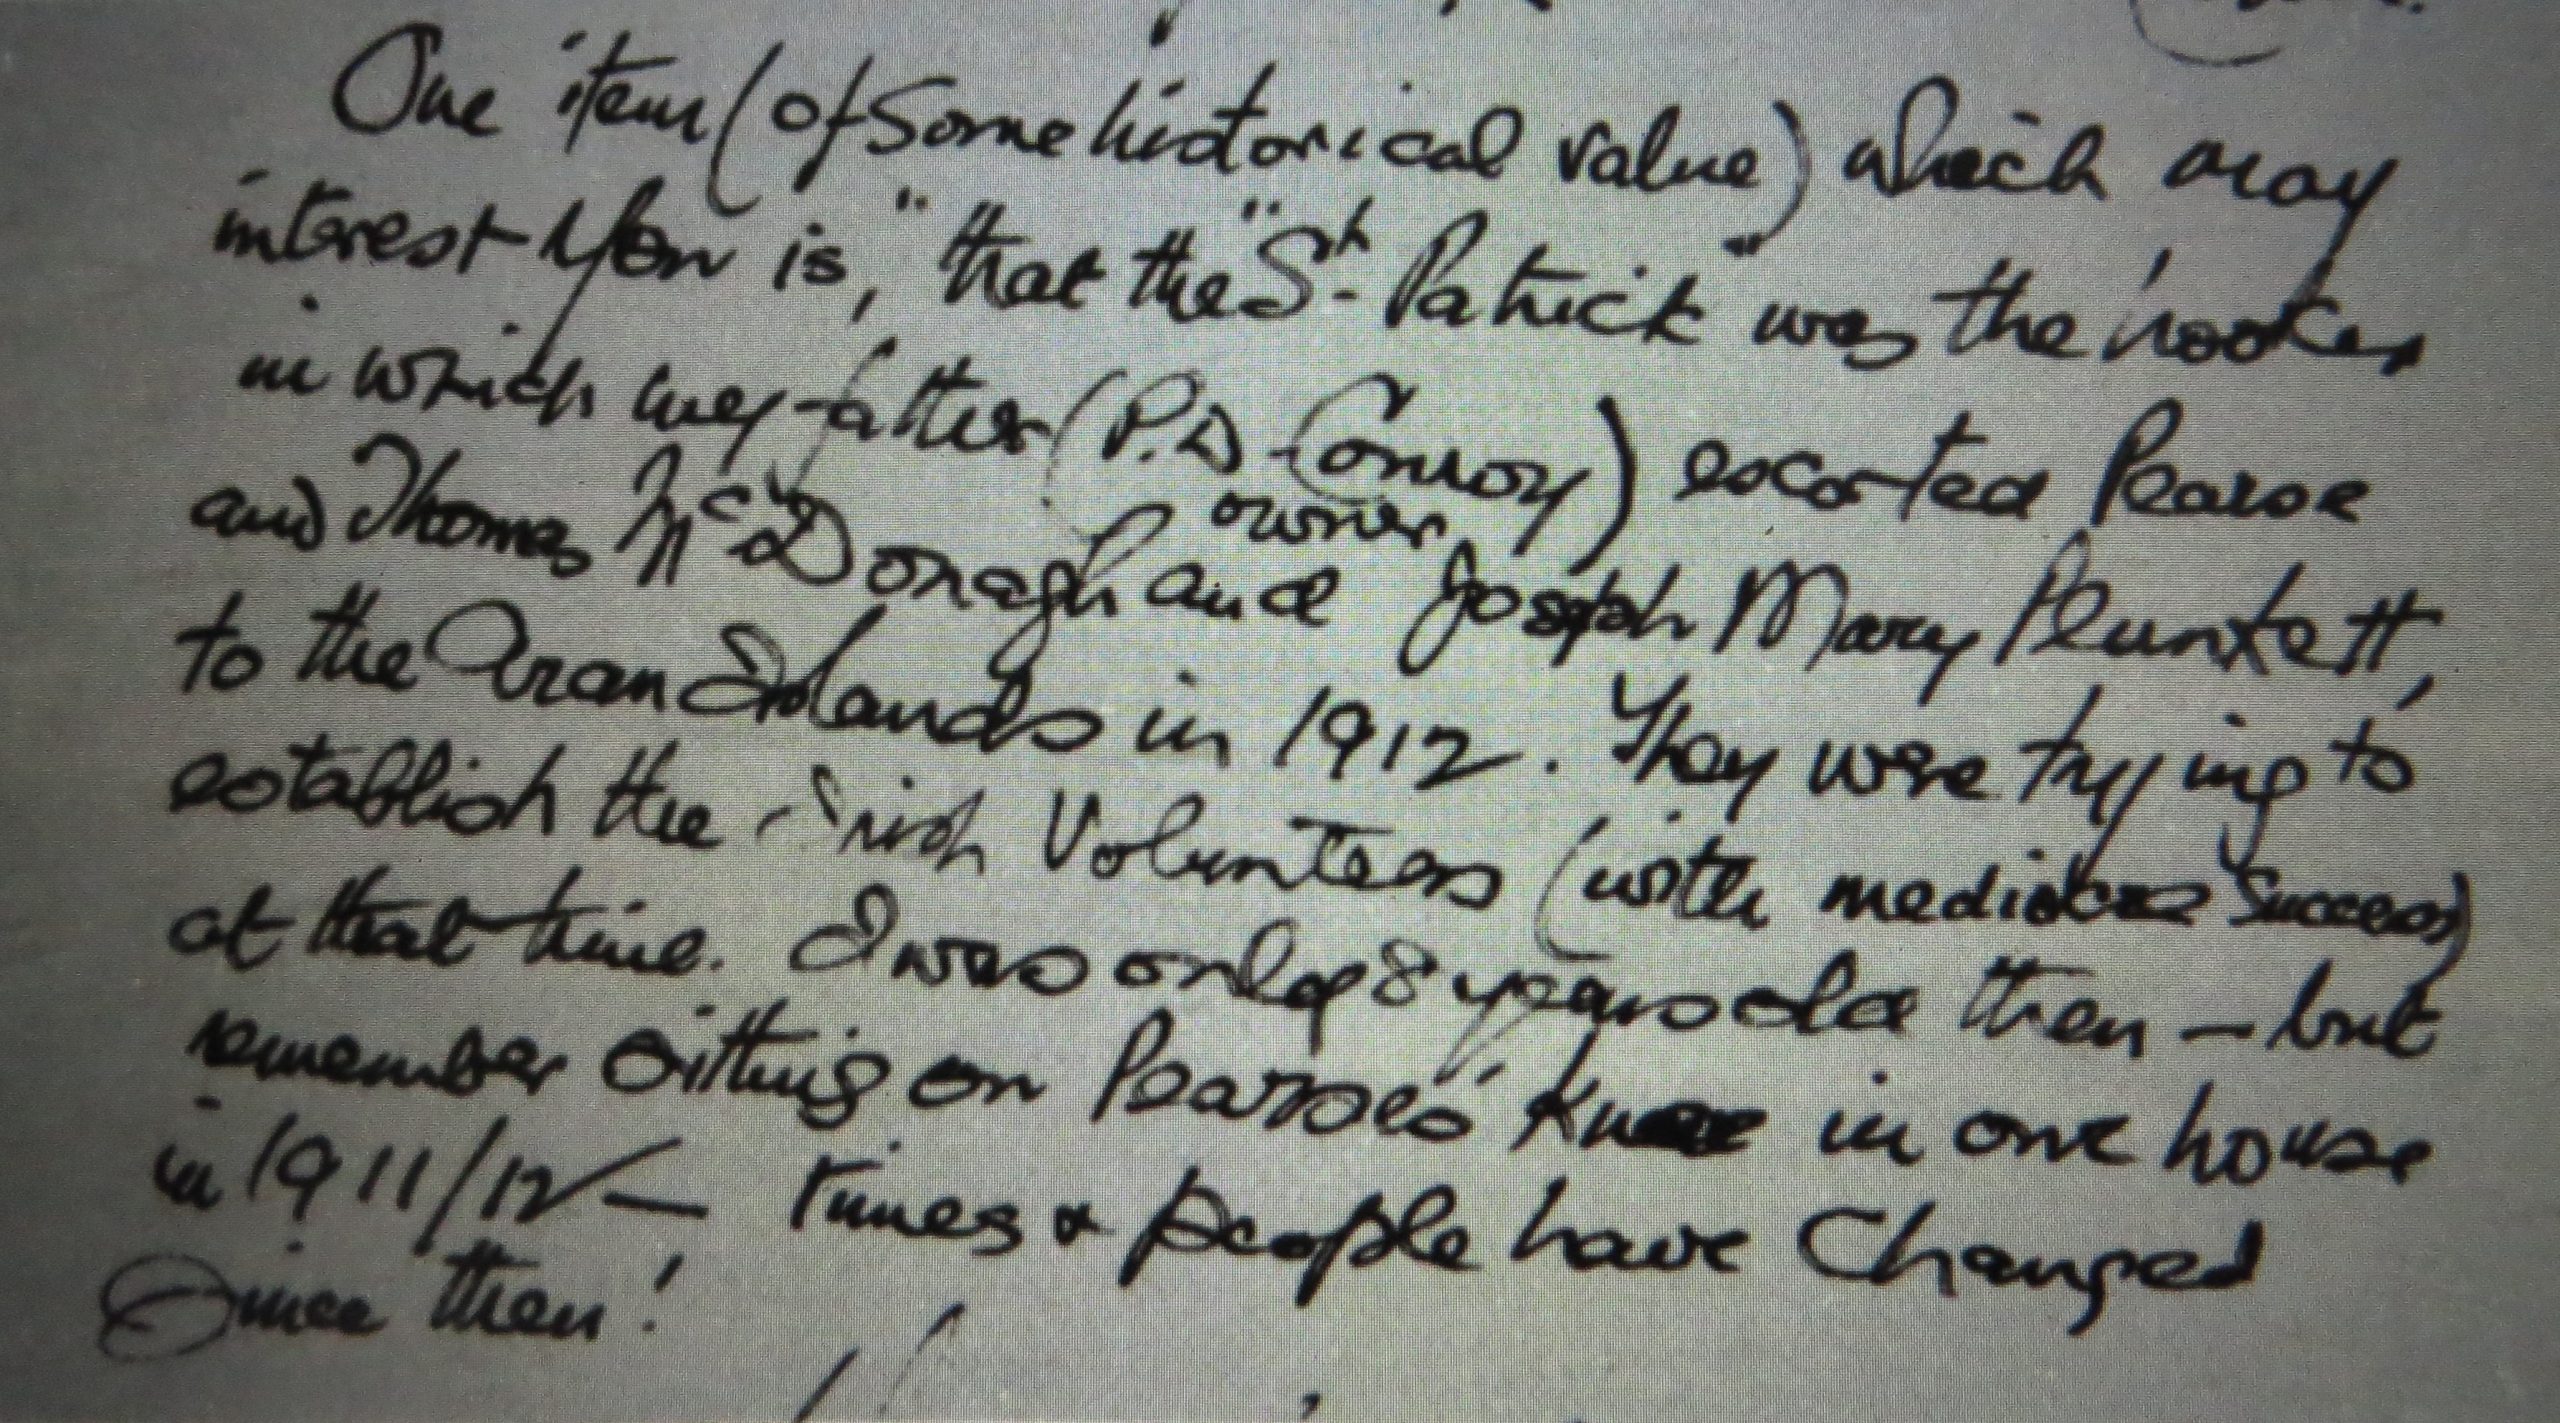 One item (of some historical value) which may
interest you is, "that the "St. Patrick" was the hooker
in which my father (P.D. Conroy) escorted Pearse
owner
and Thomas McDonagh and Joseph Mary Plunkett,
to the Aran Islands in 1912. They were trying to
establish the Irish Volunteers (with mediocre success)
at that time. I was only 8 years old then – but
remember sitting on Pearses' knee in one house
in 1911/12 — times & people have changed
since then!